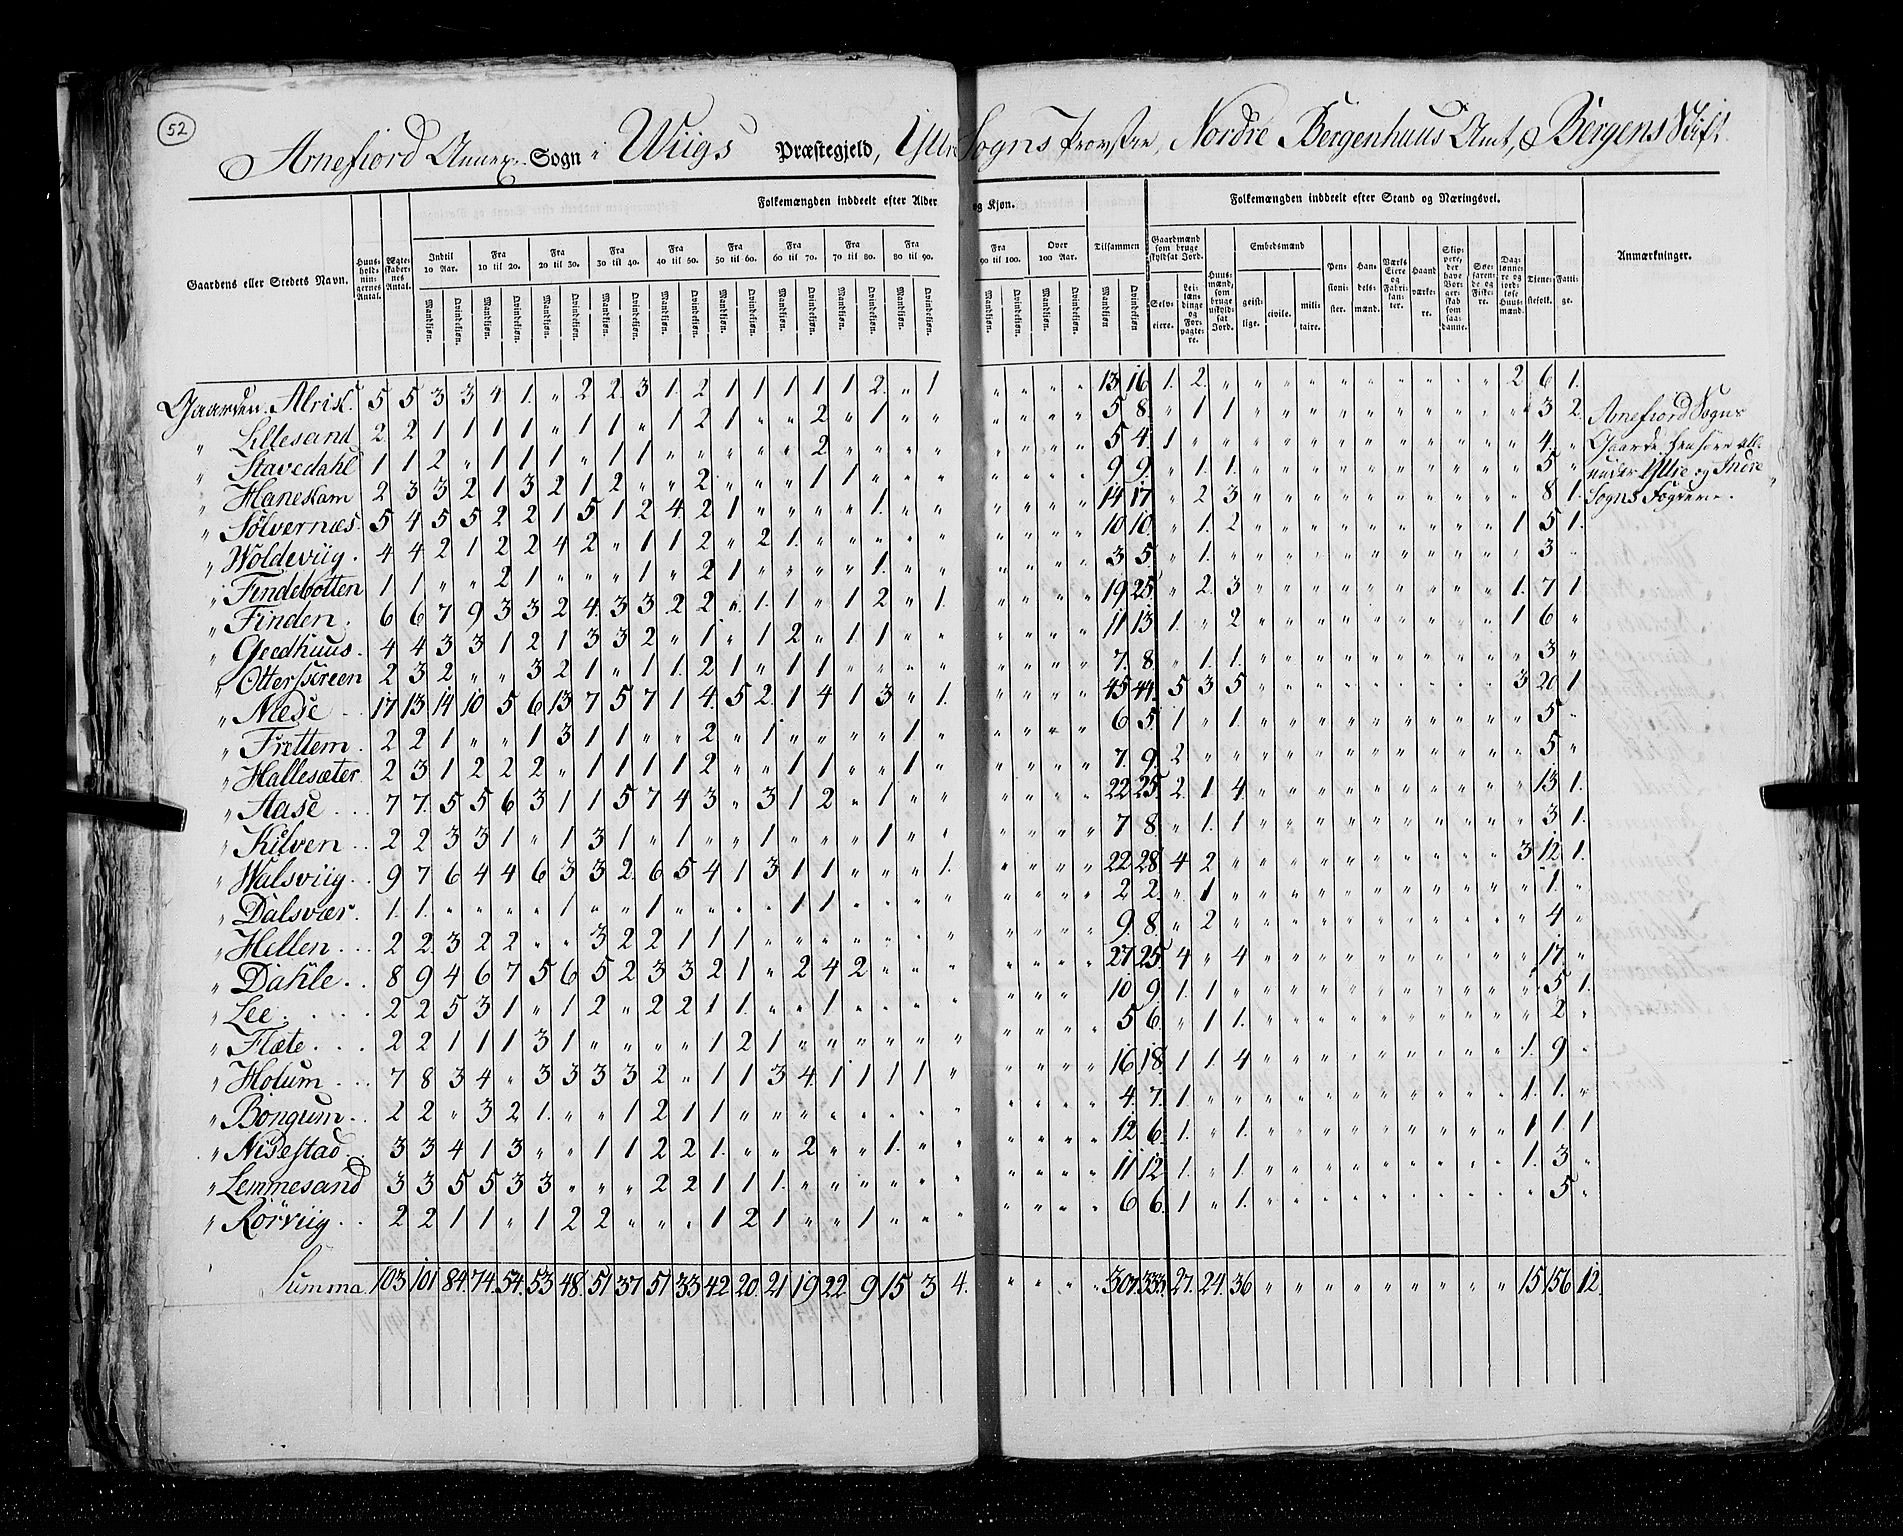 52
Arnefiord Annex Sogn i Wiigs Præstegjeld, Yttre Sogns Provstie, Nordre Bergenhuus Amt, Bergens Stift.
Gaardens eller Stedets Navn.
Huus-holdningernes Antal.
Ægteskabernes Antal.
Folkemængden inddeelt efter Alder og Kjøn.
Indtil 10 Aar. Fra 10 til 20. Fra 20 til 30. Fra 30 til 40. Fra 40 til 50. Fra 50 til 60. Fra 60 til 70. Fra 70 til 80. Fra 80 til 90. Fra 90 til 100. Over 100 Aar. Tilsammen
Mandkjøn. Qvindekjøn.
Folkemængden inddeelt efter Stand og Næringsvei.
Gaardmænd som bruge skyldsat Jord.
Selveiere. Leilændinge og Forpagtere.
Huusmænd, som bruge uskyldsat Jord.
Embedsmænd
geistlige. civile. militaire.
Pensionister. Handelsmænd. Værks Eiere og Fabrikanter. Haandværkere. Skippere, der have Borgerskab som saadanne. Søefarende og Fiskere. Daglønnere og jordløse Huusmænd. Tienestefolk. Fattige.
Anmærkninger.
Gaarden Alrik. 5 5 3 3 4 1. " 2 2 3 1. 2 1 1 1 1 1 2. " 1 " " " " 13 16 1. 2. " " " " " " " " " " 2 6 1.
" Lillesand 2 2 1 1 1 1 " 1 1 " 1 2 1 " " 2 " 1 " " " " " " 5 8. " 1 1 " " " " " " " " " " 3 2
" Stavedahl 1 1 2 " 1 1 1 " 1 1 " " " " " 2 " " " " " " " " 5 4. 1 " " " " " " " " " " " " 4. "
" Haneskam 2 3 3 2 1 3 2 1 2 " " 2 " " 1 1 " " " " " " " " 9 9 " 1. 1. " " " " " " " " " " 5 "
" Sølvernæs 5 4 5 5 2 2 1 5 1 2 4 2 1 " " " " 1. " " " " " " 14 17 " 2 3 " " " " " " " " " " 8 1.
" Woldeviig. 4 4 2 1 2 2 4 2 " 1 1 2 " 2 1. " " " " " " " " " 10 10. " 1. 2 " " " " " " " " " 1 5 1.
" Findebotten 1 1 " " 2 1 " " " 1 " 2 1 " " " " 1. " " " " " " 3 5. " 1. " " " " " " " " " " " 3 "
" Finden. 6 6 7 9 3 3 2 4 3 3 2 2 " 1. 1 " 1 2 " 1. " " " " 19 25. " 2 3 " " " " " " " " " 1. 7 1
" Geedhuus. 4 4 3 3 1 2 1 3 3 2 " 1 " 1 2 " 1 1 " " " " " " 11 13 1. " 2 " " " " " " " " " 1 6 "
" Otterskreen 2 3 2 " " 3 2 1 " 1 1. 2 1 " 1 1 " " " " " " " " 7. 8. " 1. 1. " " " " " " " " " " 3 "
" Næse 17 13 14 10 5 6 13 7 5 7 1 4. 5 2. 1 4 1 3 " 1. " " " " 45 44. 5 3 5 " " " " " " " " " 3 20 1
" Frettem. 2 2 1 " " 1 3 1 1 " " 2 " 1 " " " " 1 " " " " " 6 5. 1 " 1. " " " " " " " " " " 5 "
" Hallesæter. 2 3 1 2 2 2 " 1 1 1 1 2 " " 1 1 " " 1 " " " " " 7. 9. 2 " " " " " " " " " " " " 5 "
" Aase 7 7. 5 5 6 3 1 1 5 7 4 3 " 3 1 2 " 1 " " " " " " 22 25. 2. 1 4. " " " " " " " " " " 13 1.
" Kilven 2 2 3 3 1 " 1 3 1 " 1 " " 1 " " " 1 " " " " " " 7 8. " 1. 1 " " " " " " " " " " 3 1.
" Walsviig. 9 7 6 4 4 6 3 3 2. 6 5 4 1 3 1 1 " " " 1. " " " " 22 28 4 2 " " " " " " " " " " 3 12 1.
" Dalsvær. 1. 1. " " " " 1 " " 1 " " " " 1 1 " " " " " " " " 2 2. " 1 " " " " " " " " " " " 1. "
" Hellen 2 2 3 2 2 " " 3 2 2 1 1 1 " " " " " " " " " " " 9. 8. " 2 " " " " " " " " " " " 4 "
" Dahle. 8 9 4 6 7 5 6 5 2 3 3 2 1 " 2 4 2 " " " " " " " 27 25. 4 " 4 " " " " " " " " " " 17. "
" Lee. 2 2 5 3 1 " 1 2 " 2 2 1 1. " " 1 " " " " " " " " 10 9. 1. 1 " " " " " " " " " " " 5 1.
" Flæte. 2 2 1 1 1 3 1 " " " " 1 2 1 " " " " " " " " " " 5 6. " 1 1. " " " " " " " " " " 2 "
" Holum 7 8 3 4 " 3 3 3 3 2 " 1 1 3 4 1 1 1 1 " " " " " 16 18. 1 1. 4 " " " " " " " " " 1. 9 "
" Bongum 2 2 " 3 2 1. " " 1 2 1 1 " " " " " " " " " " " " 4. 7. 1. " " " " " " " " " " " 1. 1. "
" Nisestad 3 3 4 1 3 " " 1 1 2 2 1. " " 2 " " 1. " " " " " " 12 6. 1. " 1. " " " " " " " " " 1 1 1
" Lemmesand 3 3 5 5 3 3 " " " 2 2 1 1 1. " " " " " " " " " " 11 12 1. " 1. " " " " " " " " " 1. 3 "
" Rørviig 2 2 1 1 " 1 2 2 " " " 1 2 1 " " 1 " " " " " " " 6 6. 1 " 1. " " " " " " " " " " 5 "
Summa 103 101 84. 74. 54. 53 48. 51 37 51 33 42. 20. 21 19 22. 9 15. 3 4. " " " " 307. 333. 27. 24. 36 " " " " " " " " " 15 156 12.
Arnefiord Sogns
Gaarde henhøre alle
under Yttre og Indre
Sogns Fogderie.